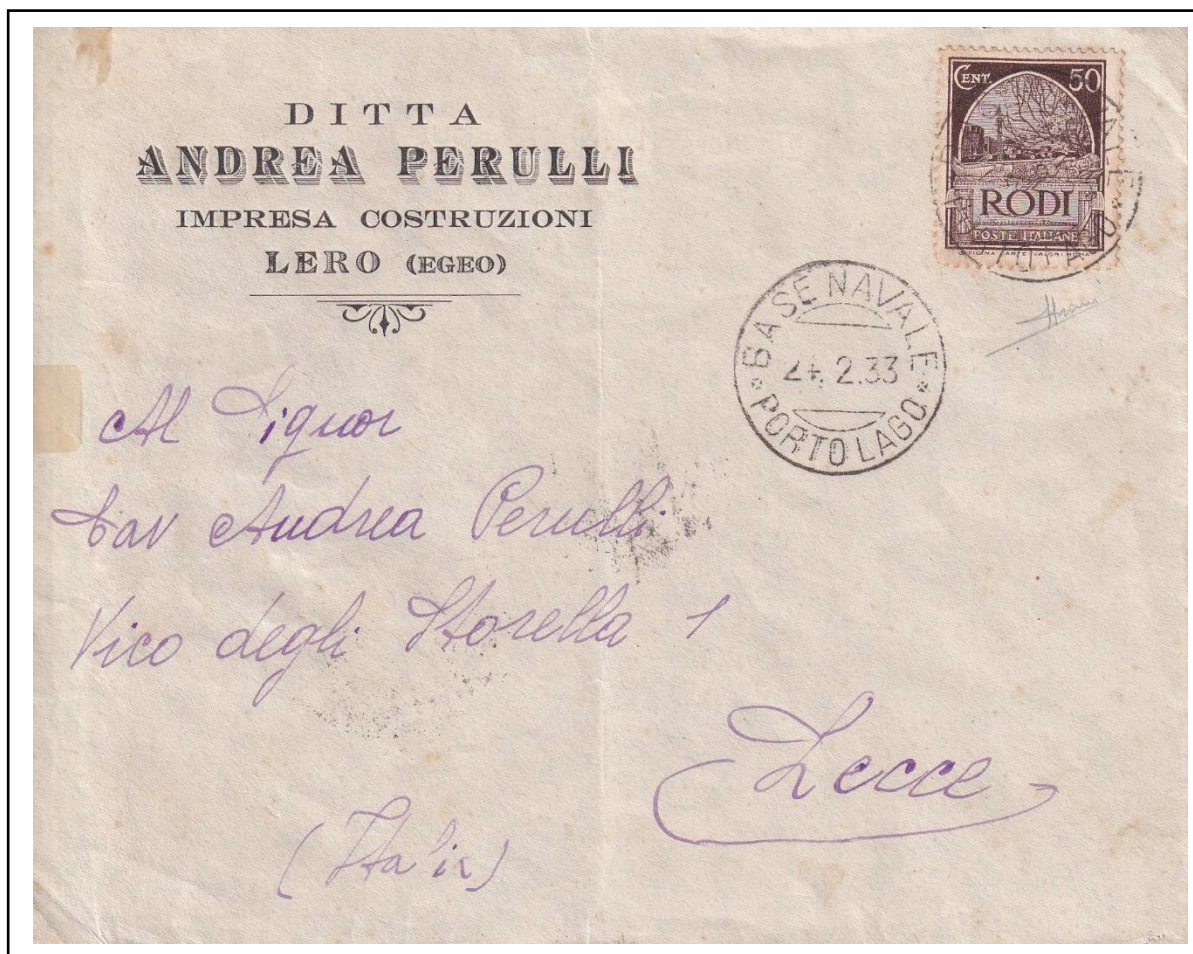 DITTA
ANDREA PERULLI
IMPRESA COSTRUZIONI
LERO (EGEO)
CENT. 50
RODI
POSTE ITALIANE
OFFICINA CARTE VALORI ROMA
BASE NAVALE
24. 2.33
PORTOLAGO
Al Signor
Cav Andrea Perulli
Vico degli Storella 1
Lecce
(Italia)